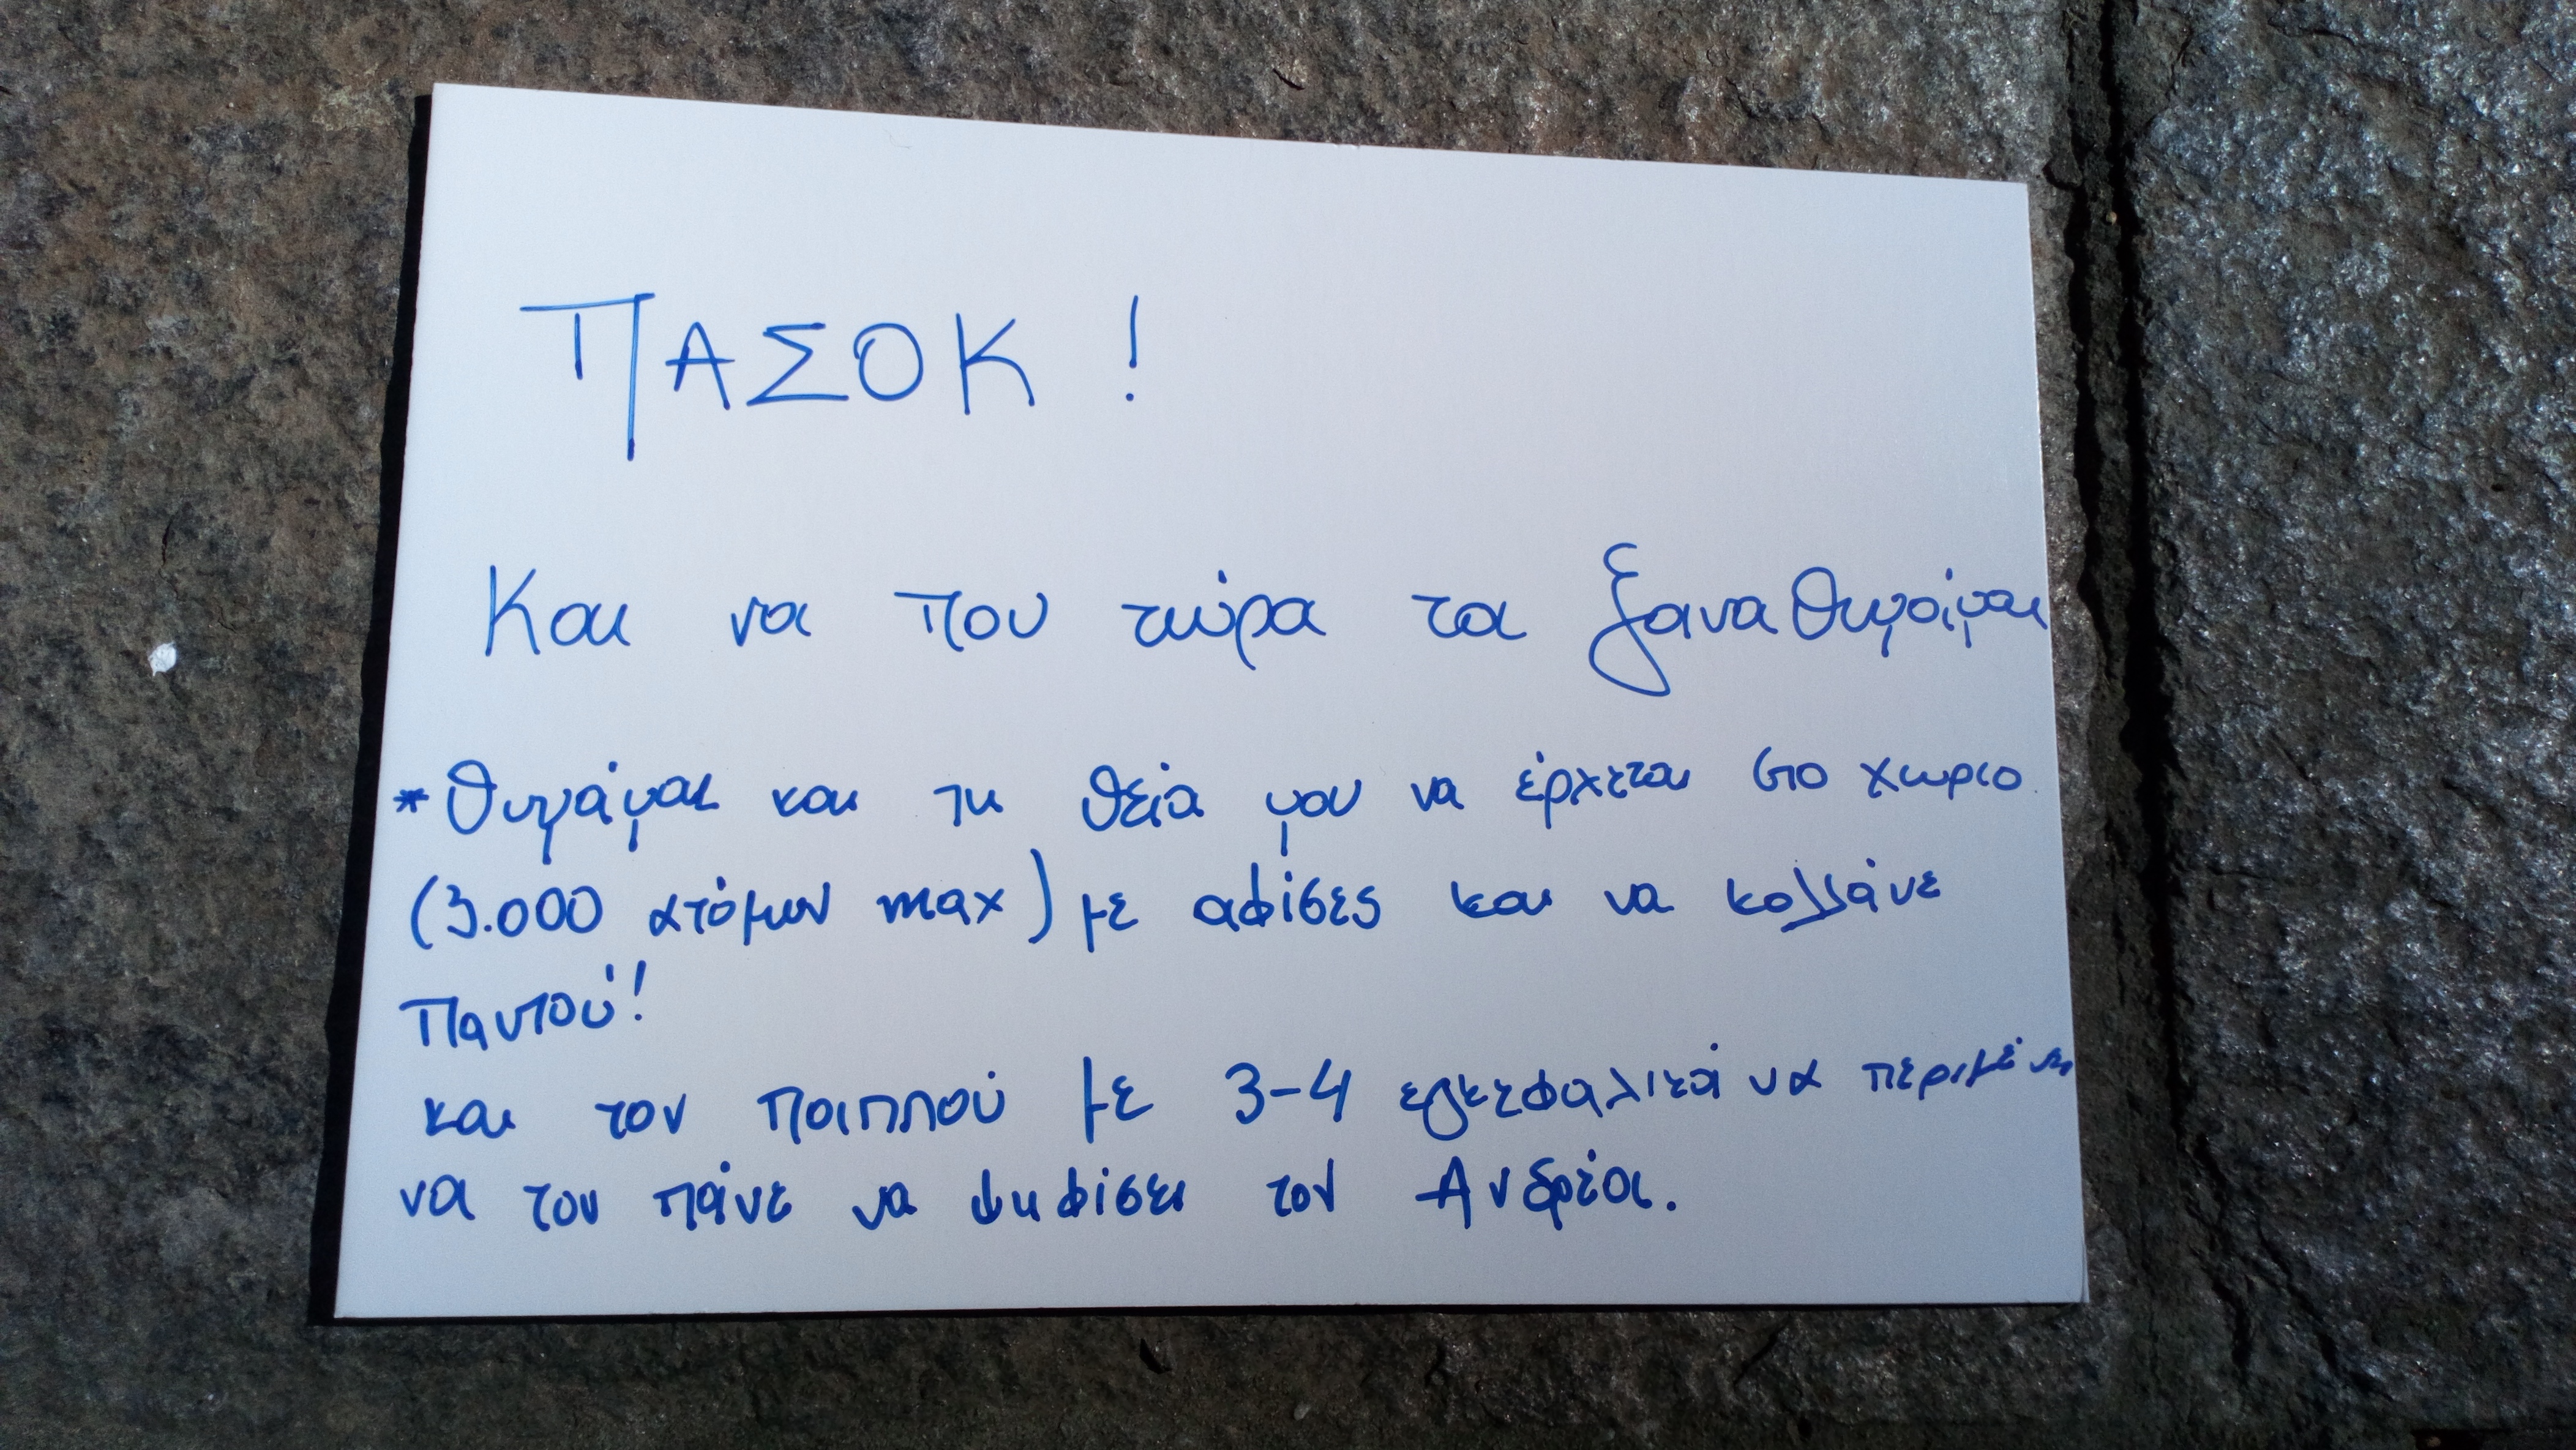 ΠΑΣΟΚ !
Και να που τώρα τα ξαναθυμάμαι
*Θυμάμαι και τη θεία μου να έρχεται στο χωριο
(3.000 ατόμων max) με αφίσες και να κολλάνε
παντού!
και τον παππού με 3-4 εγκεφαλικά να περιμένει
να τον πάνε να ψηφίσει τον Ανδρέα.